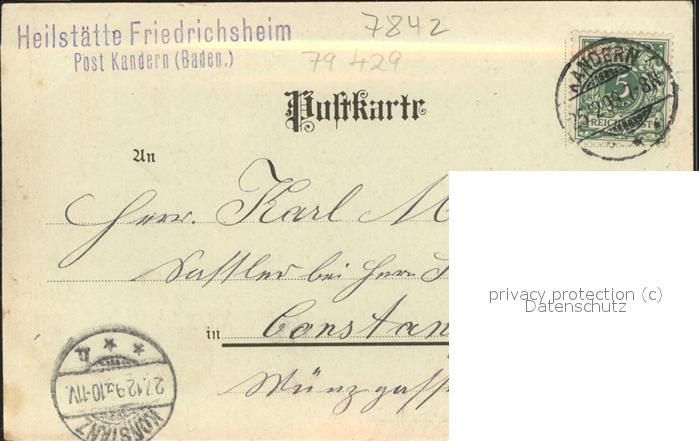 Heilstätte Friedrichsheim
Post Kandern (Baden.)
7842
79 429
KANDERN
5
REICHSPOST
Postkarte
An
Herrn Karl M
Sattler bei Herrn
in Constan
Münzgasse
KONSTANZ
privacy protection (c)
Datenschutz